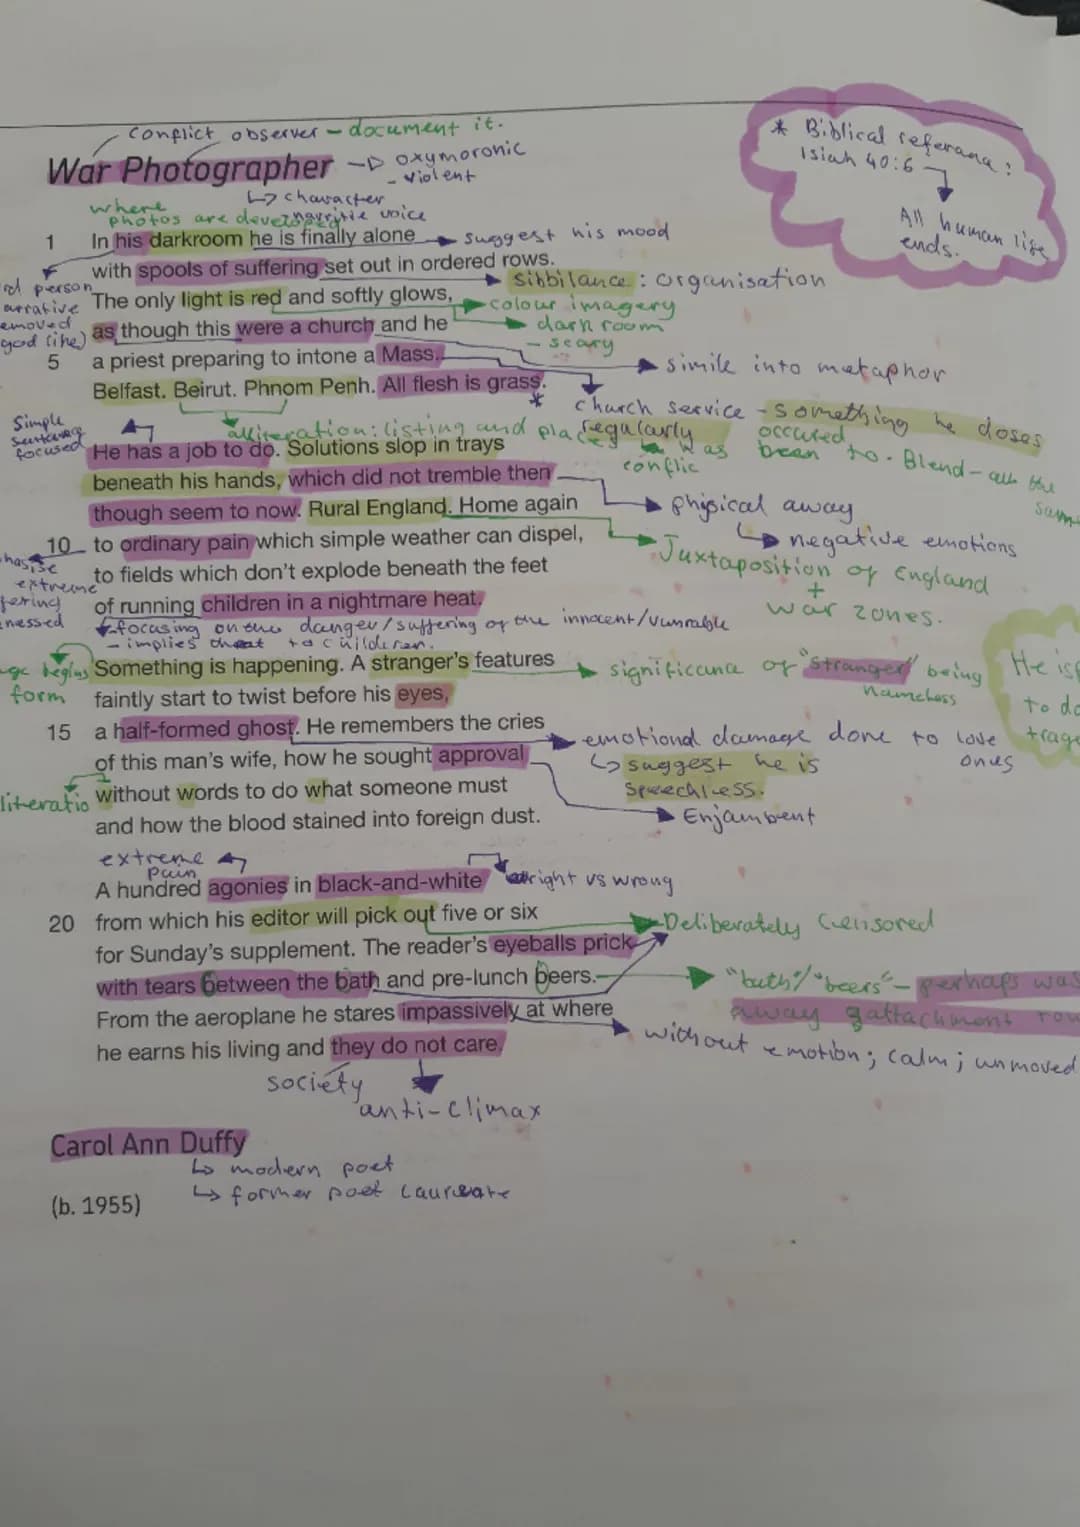 Conflict observer - document it.
War Photographer → oxymoronic
- violent
↳ character
narritie voice
where
photos are developed
* Biblical referana:
Isiah 40:6
All human life
ends.
1 In his darkroom he is finally alone
suggest his mood
with spools of suffering set out in ordered rows.
sibbilance: organisation
rd person
arrative
emoved
god like)
The only light is red and softly glows,
colour imagery
as though this were a church and he
dark room
- scary
5 a priest preparing to intone a Mass.
simile into metaphor
Belfast. Beirut. Phnom Penh. All flesh is grass.
*
church service - something he doses
regularly
alliteration: listing and places
was
conflic
occured
been to. Blend - all the
sam
Simple
sentence
focused
He has a job to do. Solutions slop in trays
beneath his hands, which did not tremble then
though seem to now. Rural England. Home again
phisical away
↳ negative emotions
10 to ordinary pain which simple weather can dispel,
Juxtaposition of England
+
war zones.
hasise
extreme
fering
nessed
to fields which don't explode beneath the feet
of running children in a nightmare heat.
focusing on the danger/suffering of the innocent/vunrable
- implies threat to children.
age begins
form
Something is happening. A stranger's features
significance of "stranger" being
nameless
faintly start to twist before his eyes,
He is
to do
trage
15 a half-formed ghost. He remembers the cries
emotional damage done to love
ones
of this man's wife, how he sought approval
↳ suggest he is
speechless.
literatio
without words to do what someone must
Enjambent
and how the blood stained into foreign dust.
extreme
pain
A hundred agonies in black-and-white
right vs wrong
20 from which his editor will pick out five or six
Deliberately Censored
for Sunday's supplement. The reader's eyeballs prick
with tears between the bath and pre-lunch beers.
"bath"/"beers" - perhaps was
away gattachment
From the aeroplane he stares impassively at where
without emotion; calm; unmoved
he earns his living and they do not care.
society
anti-climax
Carol Ann Duffy
↳ modern poet
(b. 1955)
↳ former poet laureate